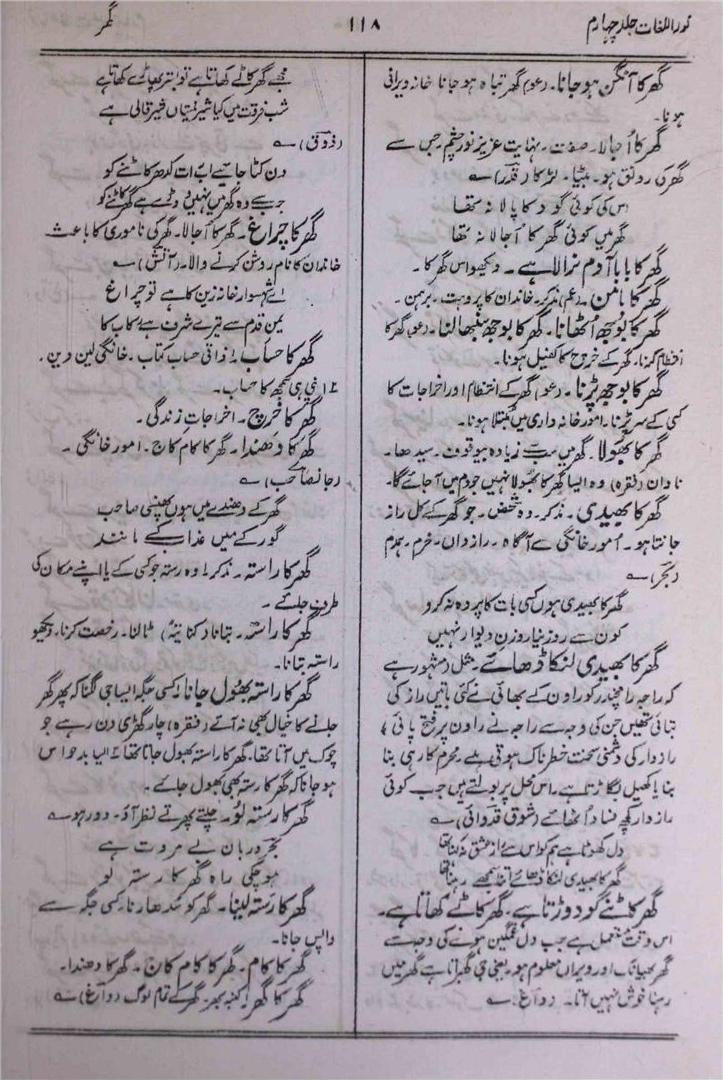 نوراللغات جلد چہارم
۱۱۸
گھر
گھر کا آنگن ہو جانا۔ (عو) گھر تباہ ہو جانا خانہ ویرانی
ہونا۔
گھر کا اُجالا۔ صفت۔ نہایت عزیز نور چشم جس سے
گھر کی رونق ہو۔ بیٹا۔ لڑکا (قدر) ؎
اس کی کوئی گود کا پالا نہ تھا
گھر میں کوئی گھر کا اُجالا نہ تھا
گھر کا باوا آدم نرالا ہے۔ دیکھو اس گھر کا۔
گھر کا بامن۔ (عم) مذکر۔ خاندان کا پروہت۔ برہمن۔
گھر کا بوجھ اُٹھانا۔ گھر کا بوجھ سنبھالنا۔ (عو) گھر کا
انتظام کرنا۔ گھر کے خرچ کا کفیل ہونا۔
گھر کا بوجھ پڑنا۔ (عو) گھر کے انتظام اور اخراجات کا
کسی کے سر پڑنا۔ امور خانہ داری میں مبتلا ہونا۔
گھر کا بھولا۔ گھر میں سب سے زیادہ بیوقوف۔ سیدھا۔
نادان (فقرہ) وہ ایسا گھر کا بھولا نہیں جو دم میں آ جائے گا۔
گھر کا بھیدی۔ مذکر۔ وہ شخص۔ جو گھر کے کل راز
جانتا ہو۔ اُمور خانگی سے آگاہ۔ رازداں۔ محرم۔ ہمدم
(بحر) ؎
گھر کا بھیدی ہوں کسی بات کا پردہ نہ کرو
کون سے روز نیا روزن دیوار نہیں
گھر کا بھیدی لنکا ڈھائے۔ مثل (مشہور ہے
کہ راجہ رامچندر کو راون کے بھائی نے کئی باتیں راز کی
بتائی تھیں جن کی وجہ سے راجہ نے راون پر فتح پائی)
رازدار کی دشمنی سخت خطرناک ہوتی ہے۔ محرم کار ہی بنا
بنایا کھیل بگاڑتا ہے۔ اس محل پر بولتے ہیں جب کوئی
رازدار کچھ فساد اُٹھائے (شوق قدوائی) ؎
دل کھوٹا ہے ہم کو اس سے راز عشق نہ کہنا تھا
گھر کا بھیدی لنکا ڈھائے اتنا سمجھے رہنا تھا
گھر کاٹنے کو دوڑتا ہے۔ گھر کاٹے کھاتا ہے۔
اس وقت مستعمل ہے جب دل غمگین ہونے کی وجہ سے
گھر بھیانک اور ویران معلوم ہو۔ یعنی جی گھبراتا ہے گھر میں
رہنا خوش نہیں آتا۔ (داغ) ؎
مجھے گھر کاٹے کھاتا ہے تو بستر پھاڑے کھاتا ہے
شب فرقت میں کیا شیر نیستاں شیر قالی ہے
(ذوق) ؎
دن کٹا جائیے اب رات کدھر کاٹنے کو
جب سے وہ گھر میں نہیں دوڑے ہے گھر کاٹنے کو
گھر کا چراغ۔ گھر کا اُجالا۔ گھر کی ناموری کا باعث
خاندان کا نام روشن کرنے والا۔ (آتش) ؎
اے شہسوار خانہ زیں کا ہے تو چراغ
یمن قدم سے تیرے شرف ہے رکاب کا
گھر کا حساب۔ ۱۔ ذاتی حساب کتاب۔ خانگی لین دین۔
۲۔ اپنی ہی سمجھ کا حساب۔
گھر کا خرچ۔ اخراجات زندگی۔
گھر کا دھندا۔ گھر کا کام کاج۔ امور خانگی۔
(جانصاحب) ؎
گھر کے دھندے میں ہوں پھنسی صاحب
گور کے میں عذاب کے مانند
گھر کا راستہ۔ مذکر۔ وہ رستہ جو کسی کے یا اپنے مکان کی
طرف جائے۔
گھر کا راستہ۔ بتانا (کنایۃً) ٹالنا۔ رخصت کرنا۔ دیکھو
راستہ بتانا۔
گھر کا راستہ بھول جانا۔ کسی جگہ ایسا جی لگنا کہ پھر گھر
جانے کا خیال بھی نہ آئے (فقرہ) چار گھڑی دن رہے جو
چوک میں آتا تھا۔ گھر کا راستہ بھول جاتا تھا ۲۔ ایسا بدحواس
ہو جانا کہ گھر کا رستہ بھی بھول جائے۔
گھر کا رستہ لو۔ چلتے پھرتے نظر آؤ۔ دور ہو ؎
بحر دربان بے مروت ہے
ہو چکی راہ گھر کا رستہ لو
گھر کا رستہ لینا۔ گھر کو سدھارنا۔ کسی جگہ سے
واپس جانا۔
گھر کا کام۔ گھر کا کام کاج۔ گھر کا دھندا۔
گھر کا گھر۔ کنبہ بھر۔ گھر کے تمام لوگ (داغ) ؎